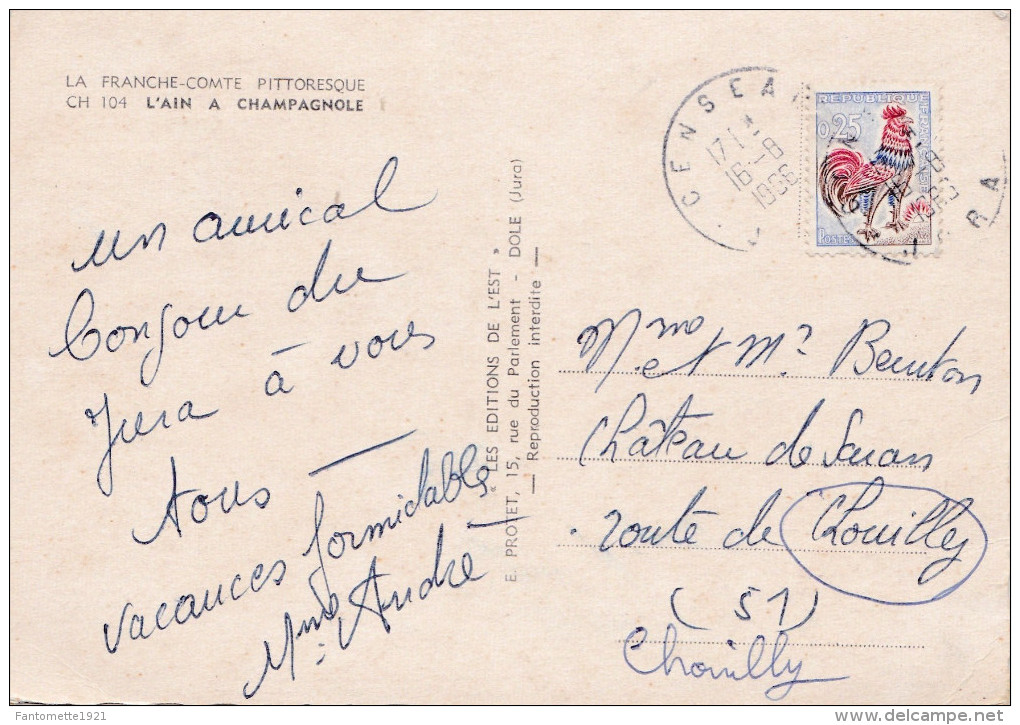 LA FRANCHE-COMTE PITTORESQUE
CH 104 L'AIN A CHAMPAGNOLE
un amical
bonjour du
Jura à vous
tous —
vacances formidables
Mme André —
E. PROTET, 15, rue du Parlement - DOLE (Jura)
« LES EDITIONS DE L'EST »
— Reproduction interdite —
CENSEAU
17 H
16-8
1966
JURA
REPUBLIQUE FRANÇAISE
0,25
POSTES
Mme et Mr
Château de Saran
route de Chouilly
(51)
Chouilly
Fantomette1921
delcampe.net